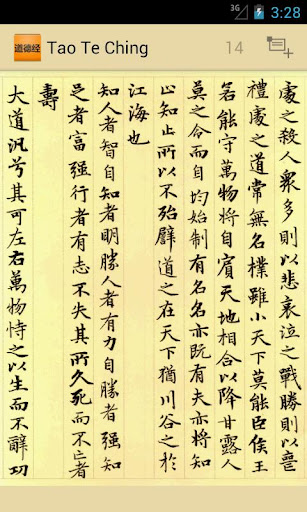 3G 3:28
道德经 Tao Te Ching 14
處之人衆多則以悲哀泣之戰勝則以
禮處之道常無名樸雖小天下莫能臣侯王
若能守萬物將自賓天地相合以降甘露人
莫之令而自均始制有名名亦既有夫亦將知
止知止所以不殆譬道之在天下猶川谷之於
江海也
知人者智自知者明勝人者有力自勝者強知
足者富強行者有志不失其所久死而不亡者
壽
大道汎兮其可左右萬物恃之以生而不辭功